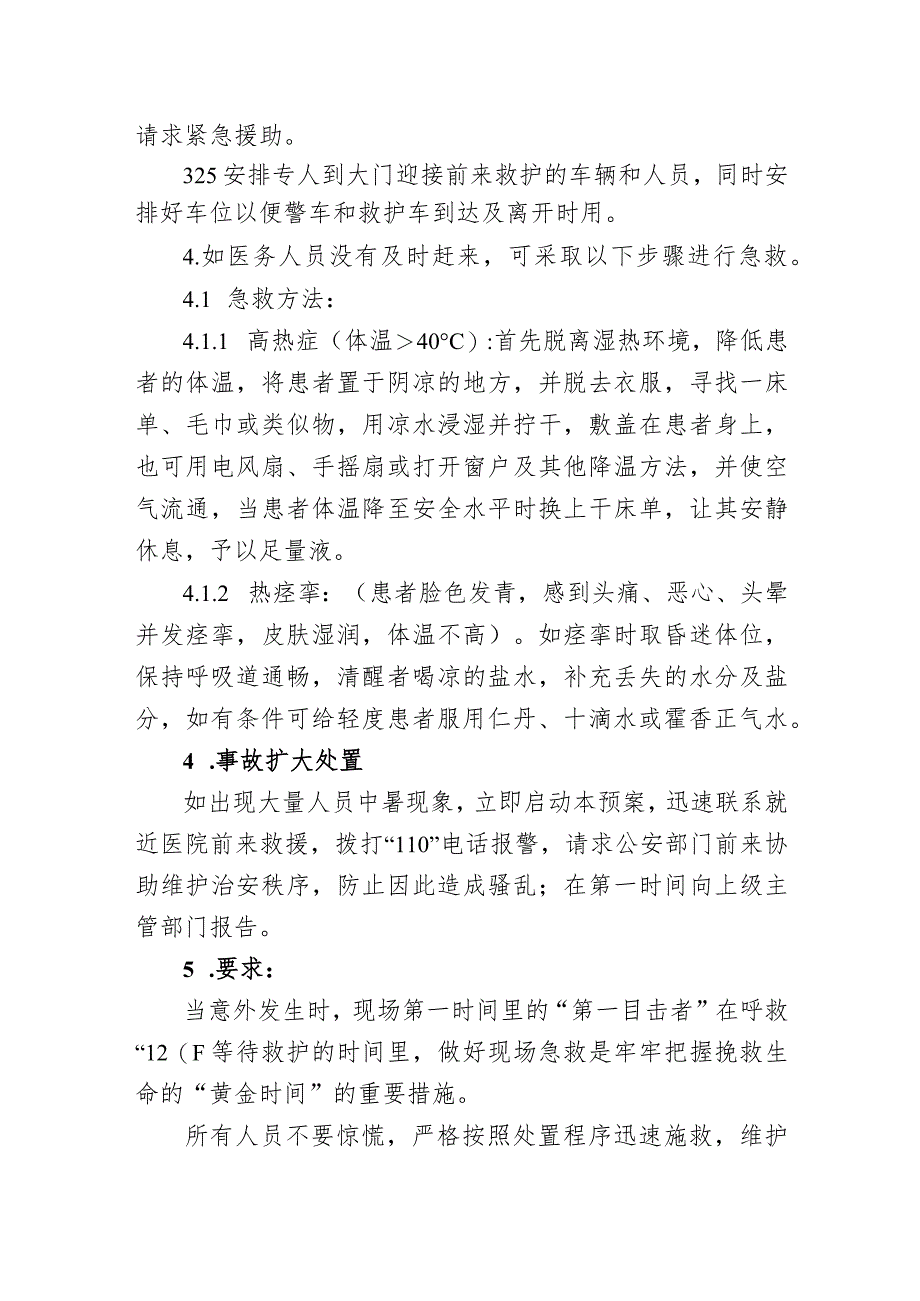 请求紧急援助。
325 安排专人到大门迎接前来救护的车辆和人员，同时安
排好车位以便警车和救护车到达及离开时用。
4.如医务人员没有及时赶来，可采取以下步骤进行急救。
4.1 急救方法：
4.1.1 高热症（体温＞40°C）:首先脱离湿热环境，降低患
者的体温，将患者置于阴凉的地方，并脱去衣服，寻找一床
单、毛巾或类似物，用凉水浸湿并拧干，敷盖在患者身上，
也可用电风扇、手摇扇或打开窗户及其他降温方法，并使空
气流通，当患者体温降至安全水平时换上干床单，让其安静
休息，予以足量液。
4.1.2 热痉挛：（患者脸色发青，感到头痛、恶心、头晕
并发痉挛，皮肤湿润，体温不高）。如痉挛时取昏迷体位，
保持呼吸道通畅，清醒者喝凉的盐水，补充丢失的水分及盐
分，如有条件可给轻度患者服用仁丹、十滴水或霍香正气水。
4 .事故扩大处置
如出现大量人员中暑现象，立即启动本预案，迅速联系就
近医院前来救援，拨打“110”电话报警，请求公安部门前来协
助维护治安秩序，防止因此造成骚乱；在第一时间向上级主
管部门报告。
5 .要求：
当意外发生时，现场第一时间里的“第一目击者”在呼救
“12（F等待救护的时间里，做好现场急救是牢牢把握挽救生
命的“黄金时间”的重要措施。
所有人员不要惊慌，严格按照处置程序迅速施救，维护